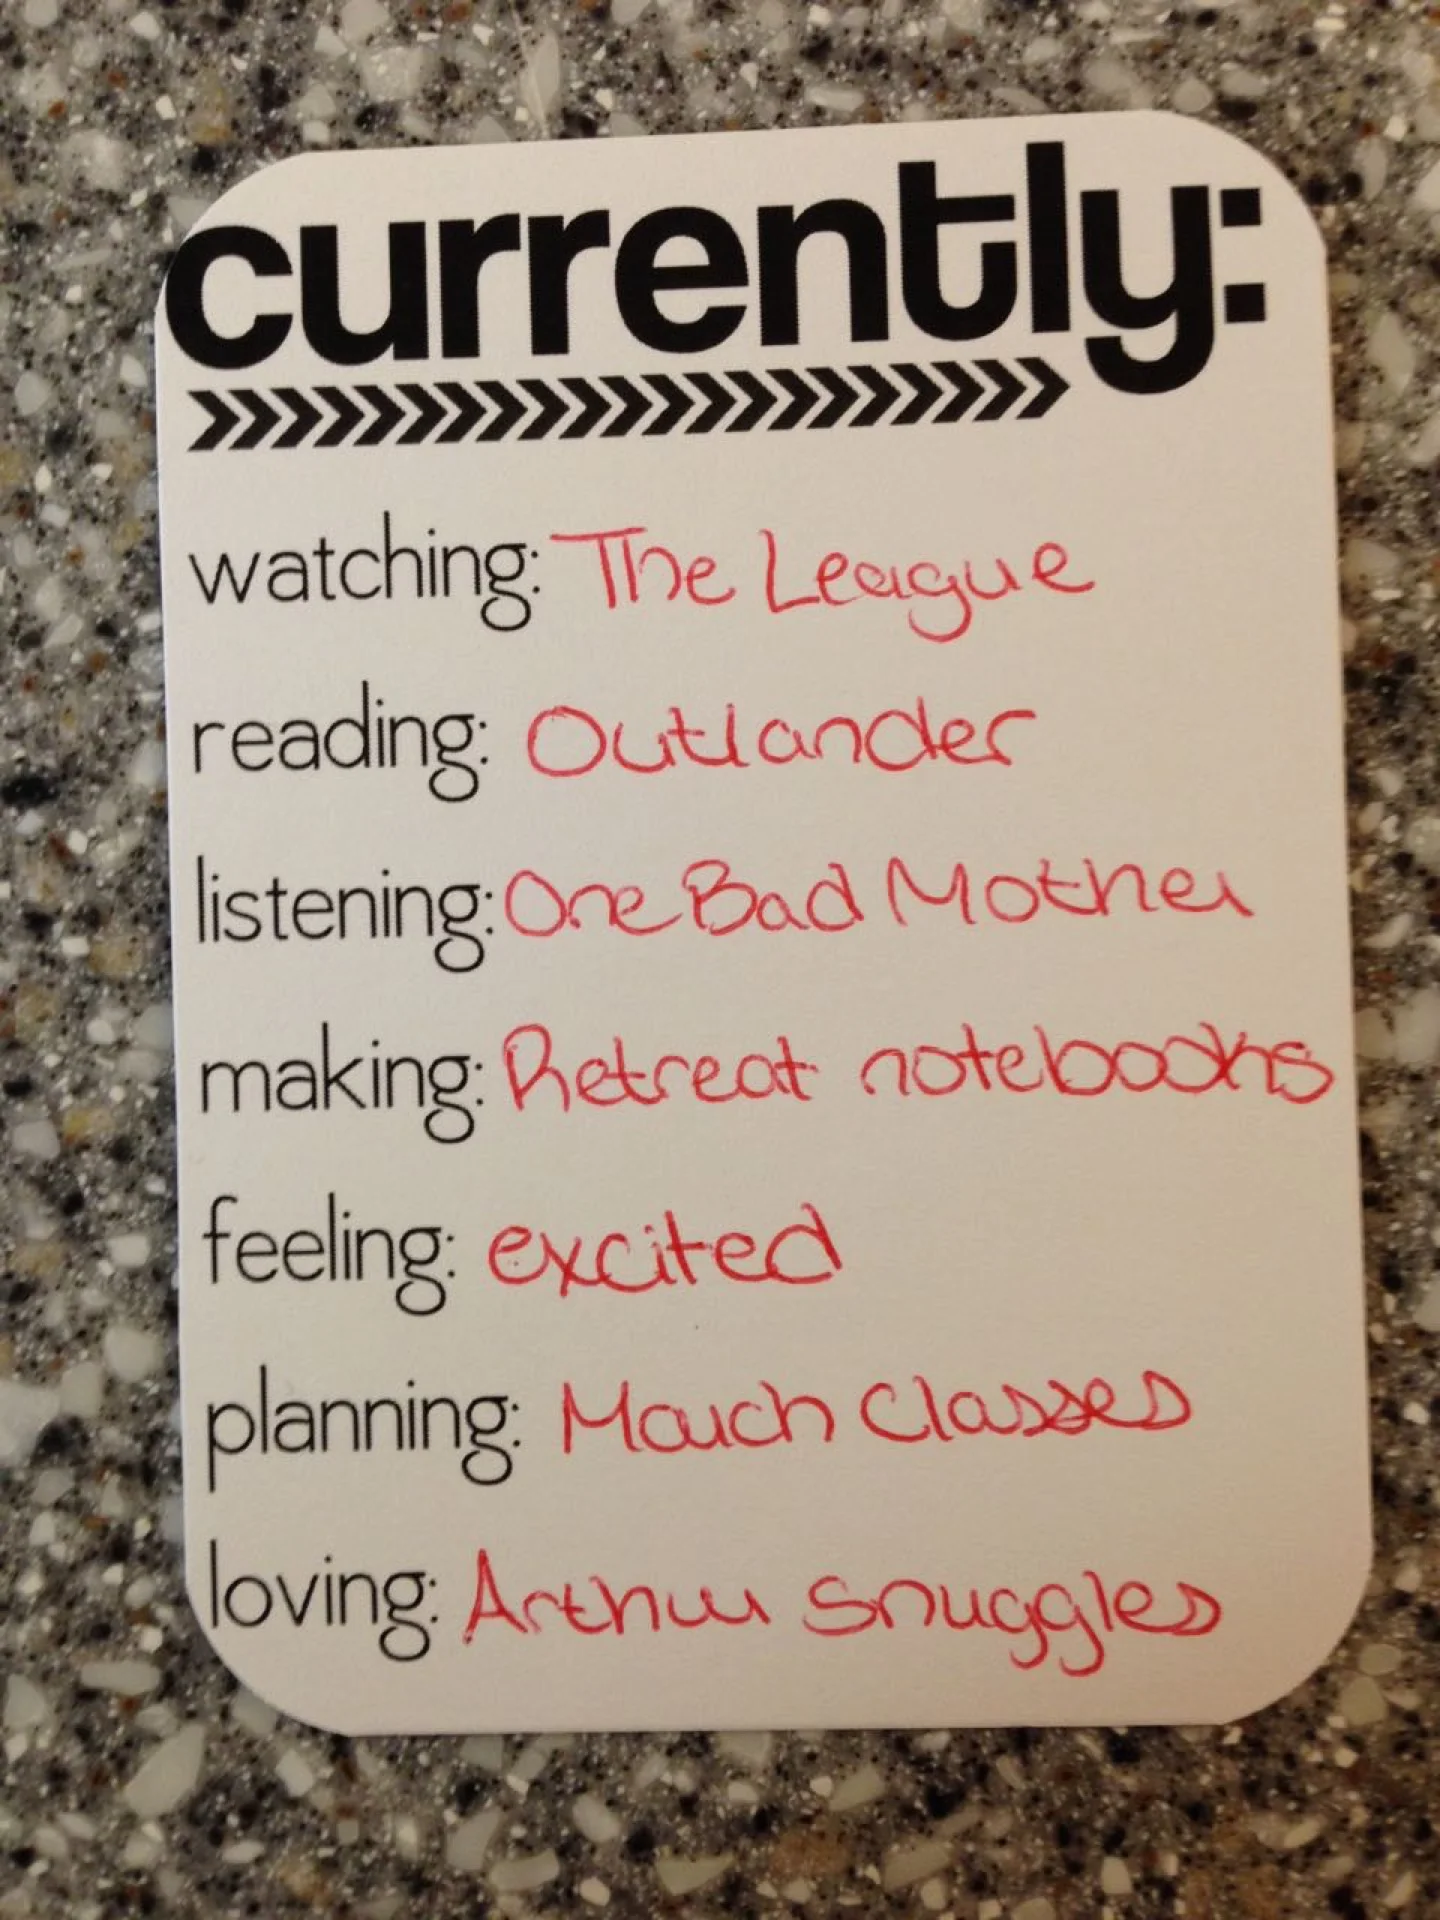 currently:
watching: The League
reading: Outlander
listening: One Bad Mother
making: Retreat notebooks
feeling: excited
planning: March Classes
loving: Arthur snuggles